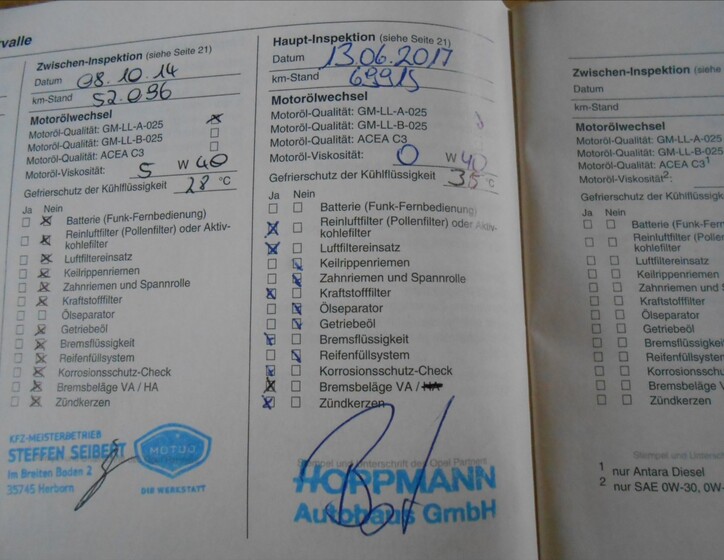 rvalle
Zwischen-Inspektion (siehe Seite 21)
Datum 08.10.14
km-Stand 52.096
Motorölwechsel
Motoröl-Qualität: GM-LL-A-025
Motoröl-Qualität: GM-LL-B-025
Motoröl-Qualität: ACEA C3
Motoröl-Viskosität: 5 W 40
Gefrierschutz der Kühlflüssigkeit 28 °C
Ja Nein
Batterie (Funk-Fernbedienung)
Reinluftfilter (Pollenfilter) oder Aktiv-
kohlefilter
Luftfiltereinsatz
Keilrippenriemen
Zahnriemen und Spannrolle
Kraftstofffilter
Ölseparator
Getriebeöl
Bremsflüssigkeit
Reifenfüllsystem
Korrosionsschutz-Check
Bremsbeläge VA / HA
Zündkerzen
KFZ-MEISTERBETRIEB
STEFFEN SEIBERT
Im Breiten Boden 2
35745 Herborn
MOTOO
DIE WERKSTATT
Haupt-Inspektion (siehe Seite 21)
Datum 13.06.2017
km-Stand 69915
Motorölwechsel
Motoröl-Qualität: GM-LL-A-025
Motoröl-Qualität: GM-LL-B-025
Motoröl-Qualität: ACEA C3
Motoröl-Viskosität: 0 W 40
Gefrierschutz der Kühlflüssigkeit 35 °C
Ja Nein
Batterie (Funk-Fernbedienung)
Reinluftfilter (Pollenfilter) oder Aktiv-
kohlefilter
Luftfiltereinsatz
Keilrippenriemen
Zahnriemen und Spannrolle
Kraftstofffilter
Ölseparator
Getriebeöl
Bremsflüssigkeit
Reifenfüllsystem
Korrosionsschutz-Check
Bremsbeläge VA / HA
Zündkerzen
Stempel und Unterschrift des Opel Partners
HOPPMANN
Autohaus GmbH
Zwischen-Inspektion (siehe
Datum
km-Stand
Motorölwechsel
Motoröl-Qualität: GM-LL-A-025
Motoröl-Qualität: GM-LL-B-025
Motoröl-Qualität: ACEA C3¹
Motoröl-Viskosität²:
Gefrierschutz der Kühlflüssigk
Ja Nein
Batterie (Funk-Fern
Reinluftfilter (Pollenf
kohlefilter
Luftfiltereinsatz
Keilrippenriemen
Zahnriemen und Sp
Kraftstofffilter
Ölseparator
Getriebeöl
Bremsflüssigkeit
Reifenfüllsystem
Korrosionsschutz
Bremsbeläge VA
Zündkerzen
Stempel und Untersch
¹ nur Antara Diesel
² nur SAE 0W-30, 0W-